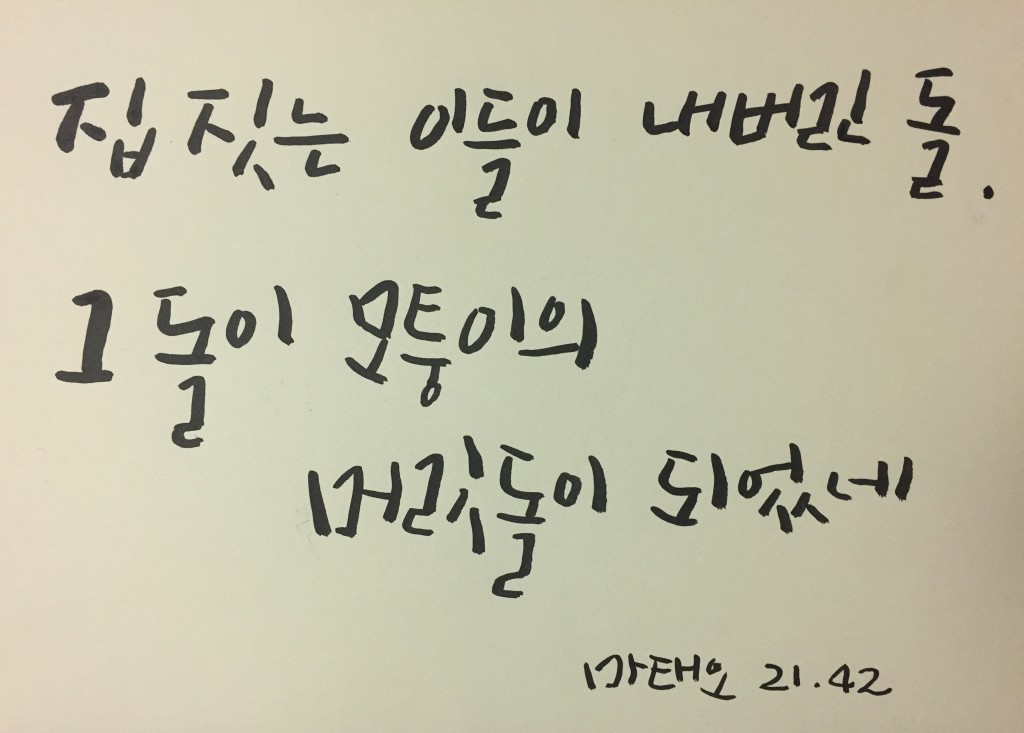 집 짓는 이들이 내버린 돌.
그 돌이 모퉁이의
머릿돌이 되었네
마태오 21.42